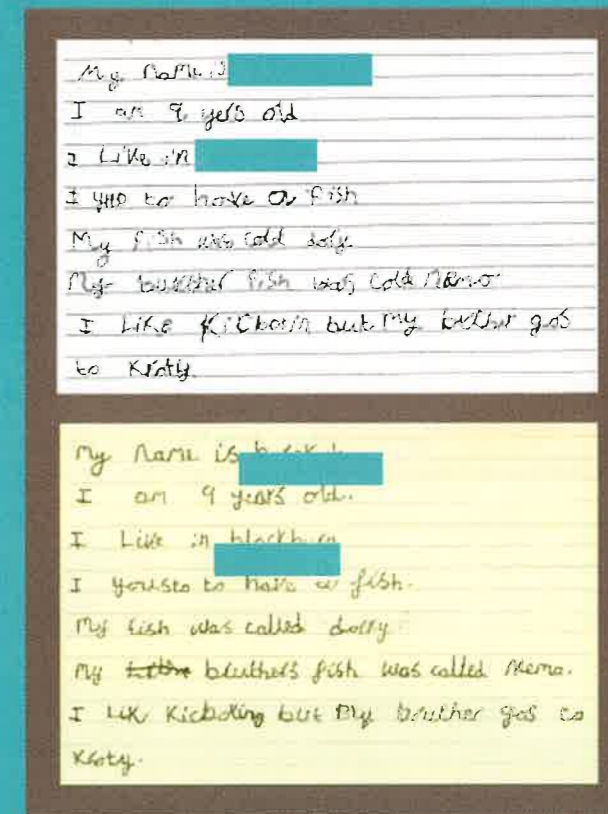 My name is
I am 9 yers old
I Like in
I yus to have a fish
My fish was cold doly
My bruther fish was cold Nemo.
I Like Kicboxin but my bruther gos
to Kraty
My name is
I am 9 years old.
I Live in
I yousto to have a fish.
My fish was called dolly.
My bruthers fish was called Nemo.
I Like Kicboxing but my bruther gos to
Kraty.